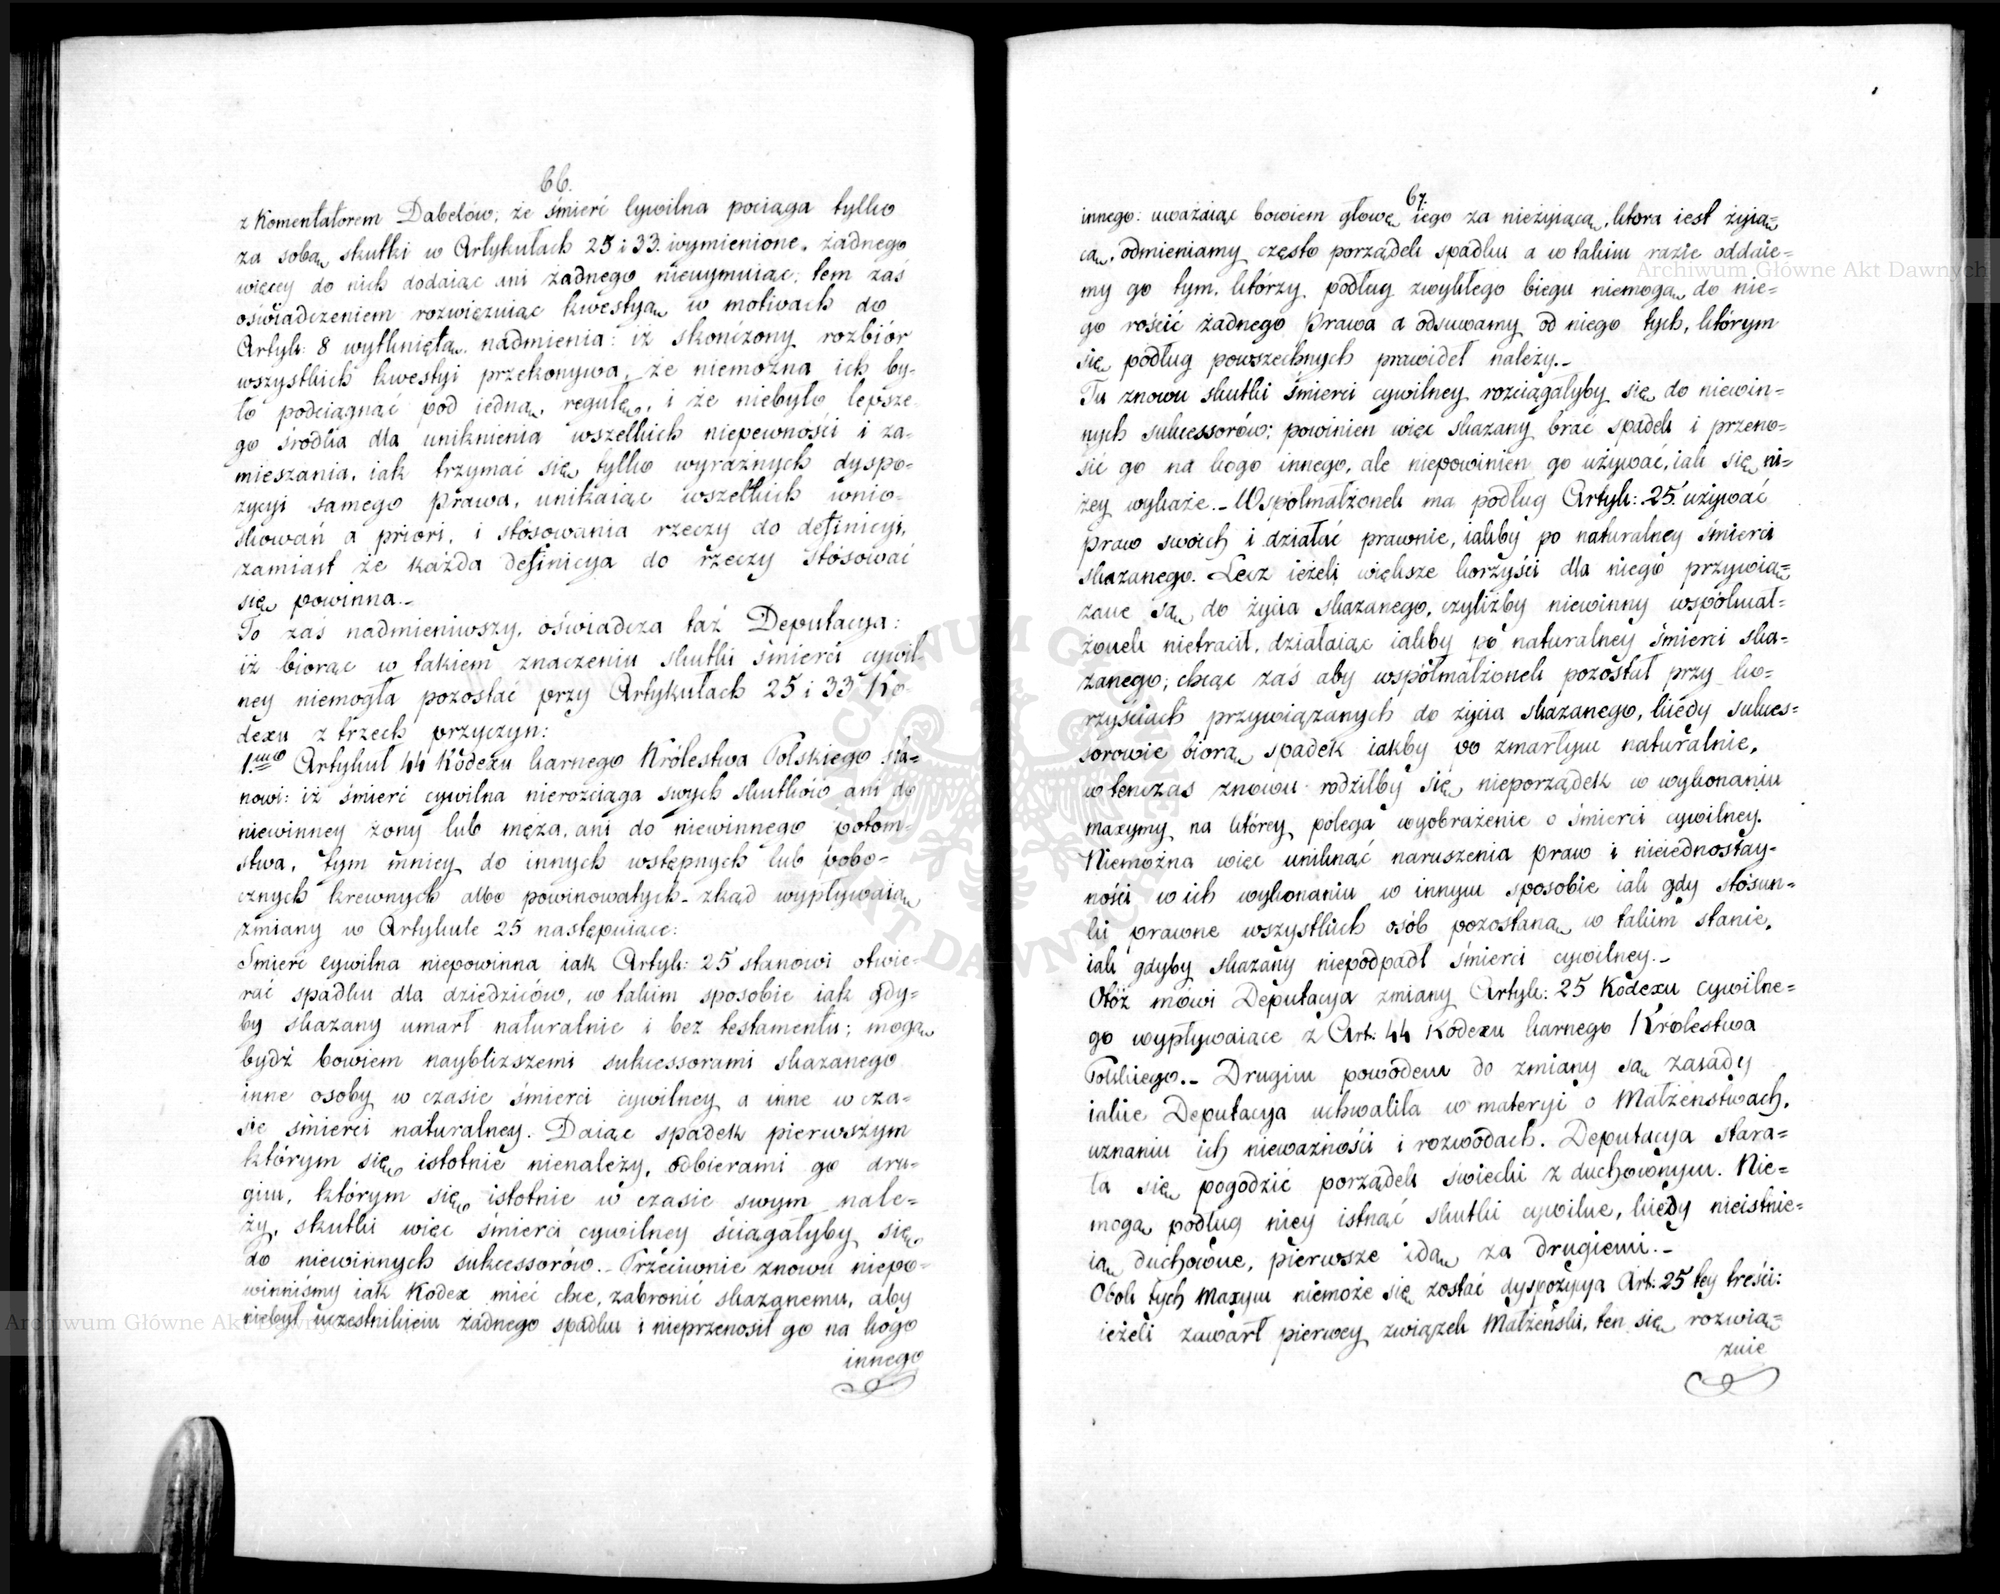 66.
z Komentatorem Dabelów, że śmierć cywilna pociąga tylko
za sobą skutki w Artykułach 25 i 33. wymienione, żadnego
więcey do nich dodaiąc ani żadnego nieuymuiąc; tem zaś
oświadczeniem rozwięzuiąc kwestyą w motivach do
Artyk: 8 wytkniętą, nadmienia: iż skończony rozbiór
wszystkich kwestyi przekonywa, że niemożna ich by-
ło podciągnąć pod iedną regułę, i że niebyło lepsze-
go środka dla uniknienia wszelkich niepewności i za-
mieszania, iak trzymać się tylko wyraźnych dyspo-
zycyi samego Prawa, unikaiąc wszelkich wnio-
skowań a priori, i stósowania rzeczy do definicyi,
zamiast że każda definicya do rzeczy stósować
się powinna.-
To zaś nadmieniwszy, oświadcza taż Deputacya:
iż biorąc w takiem znaczeniu skutki śmierci cywil-
ney niemogła pozostać przy Artykułach 25 i 33 Ko-
dexu z trzech przyczyn:
1.mo Artykuł 44 Kodexu karnego Królestwa Polskiego sta=
nowi: iż śmierć cywilna nierozciąga swych skutków ani do
niewinney żony lub męża, ani do niewinnego potom-
stwa, tym mniey do innych wstępnych lub pobo-
cznych krewnych albo powinowatych - zkąd wypływaią
zmiany w Artykule 25 następuiące:
Śmierć cywilna niepowinna iak Artyk: 25 stanowi otwie-
rać spadku dla dziedziców, w takim sposobie iak gdy-
by skazany umarł naturalnie i bez testamentu; mogą
bydź bowiem naybliższemi sukcessorami skazanego
inne osoby w czasie śmierci cywilney a inne w cza-
sie śmierci naturalney. Daiąc spadek pierwszym
którym się istotnie nienależy, odbierami go dru-
gim, którym się istotnie w czasie swym nale-
ży, skutki więc śmierci cywilney ściągałyby się
do niewinnych sukcessorów.- Przeciwnie znowu niepo-
winniśmy iak Kodex mieć chce, zabronić skazanemu, aby
niebył uczestnikiem żadnego spadku i nieprzenosił go na kogo
innego
67.
innego: uważaiąc bowiem głowę iego za nieżyiącą, która iest żyią=
cą, odmieniamy często porządek spadku a w takim razie oddaie=
my go tym, którzy podług zwykłego biegu niemogą do nie=
go rościć żadnego Prawa a odsuwamy od niego tych, którym
się podług powszechnych prawideł należy.-
Tu znowu skutki śmierci cywilney rozciągałyby się do niewin=
nych sukcessorów; powinien więc skazany brać spadek i przeno=
sić go na kogo innego, ale niepowinien go używać, iak się ni=
żey wykaże.- Wspólmałżonek ma podług Artyk: 25. używać
praw swoich i działać prawnie, iakby po naturalney śmierci
skazanego. Lecz ieżeli większe korzyści dla niego przywią=
zane są do życia skazanego, czyliżby niewinny wspólmał=
żonek nietracił, działaiąc iakby po naturalney śmierci ska=
zanego; chcąc zaś aby wspólmałżonek pozostał przy ko=
rzyściach przywiązanych do życia skazanego, kiedy sukces=
sorowie biorą spadek iakby po zmarłym naturalnie,
wtenczas znowu rodziłby się nieporządek w wykonaniu
maxymy na którey polega wyobrażenie o śmierci cywilney.
Niemożna więc uniknąć naruszenia praw i nieiednostay-
ności w ich wykonaniu w innym sposobie iak gdy stósun=
ki prawne wszystkich osób pozostaną w takim stanie,
iak gdyby skazany niepodpadł śmierci cywilney.-
Otóż mówi Deputacya zmiany Artyk: 25 Kodexu cywilne=
go wypływaiące z Art: 44 Kodexu karnego Królestwa
Polskiego.- Drugim powodem do zmiany są zasady
iakie Deputacya uchwaliła w materyi o Małżeństwach,
uznaniu ich nieważności i rozwodach. Deputacya stara=
ła się pogodzić porządek świecki z duchownym. Nie=
mogą podług niey istnąć skutki cywilne, kiedy nieistnie=
ią duchowne, pierwsze idą za drugiemi.-
Obok tych Maxym niemoże się zostać dyspozycya Art: 25 tey treści:
ieżeli zawarł pierwey związek Małżeński, ten się rozwią=
zuie